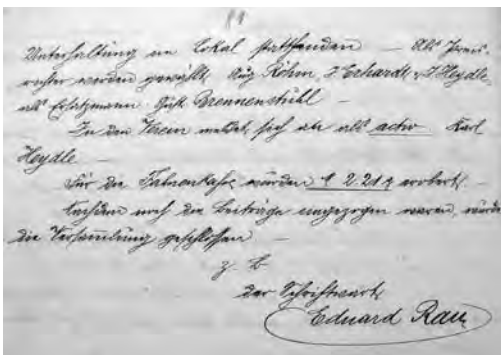 Unterhaltung im Lokal stattfinden — Als Preis-
richter werden gewählt Aug Röhm, J Erhardt, J Heydle,
als Ersatzmann Gust. Brennenstuhl —
In den Verein meldet sich als activ Karl
Heydle —
Für die Fahnenkasse wurden
Nachdem noch die Beiträge eingezogen waren, wurde
die Versammlung geschlossen —
z. B
Der Schriftwart
Eduard Rau